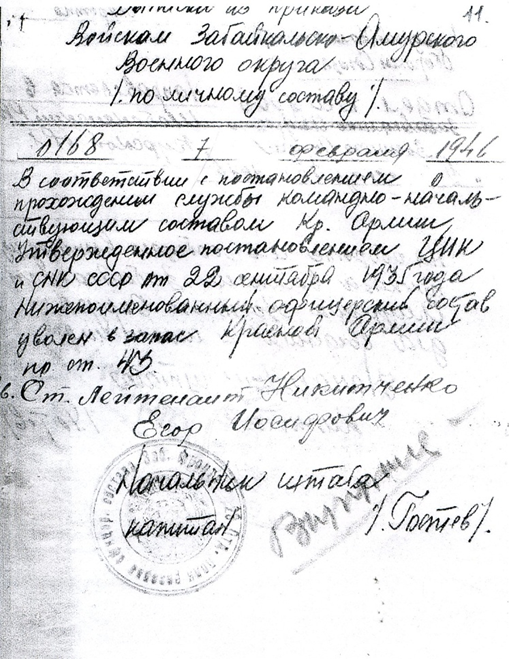 Выписки из приказа 11.
Войскам Забайкальско-Амурского
Военного округа
/. по личному составу /.
№168 7 февраля 1946
В соответствии с постановлением о
прохождении службы командно-началь-
ствующим составом Кр. Армии
Утвержденное постановлением ЦИК
и СНК СССР от 22 сентября 1935 года
Нижепоименованный офицерский состав
уволен в запас Красной Армии
по ст. 43.
Ст. Лейтенант Никитченко
Егор Иосифович
Начальник штаба
капитан /. Гостев /.